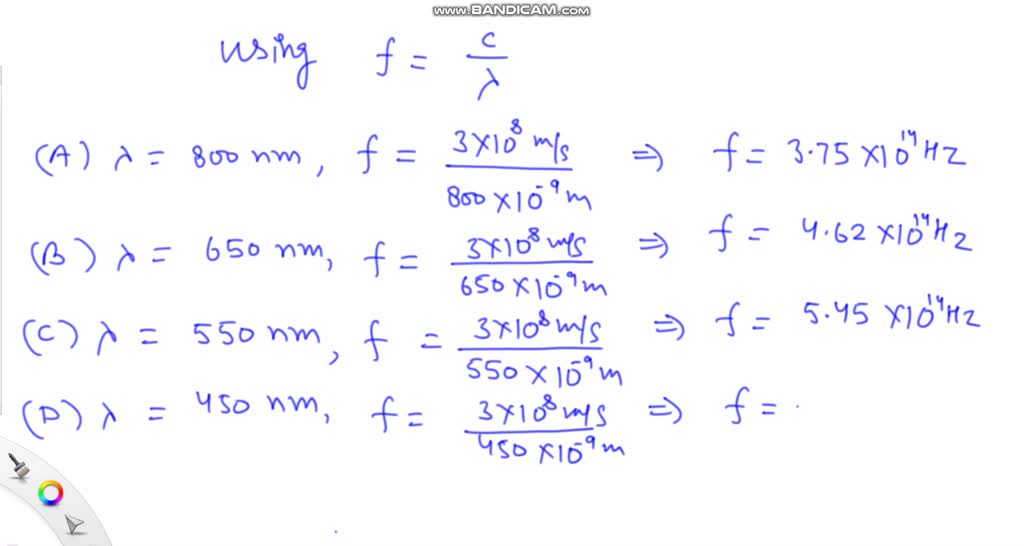 www.BANDICAM.com
Using f = c/λ
(A) λ = 800 nm, f = 3×10⁸ m/s / 800×10⁻⁹ m ⇒ f = 3.75 ×10¹⁴ HZ
(B) λ = 650 nm, f = 3×10⁸ m/s / 650×10⁻⁹ m ⇒ f = 4.62 ×10¹⁴ HZ
(C) λ = 550 nm, f = 3×10⁸ m/s / 550×10⁻⁹ m ⇒ f = 5.45 ×10¹⁴ HZ
(D) λ = 450 nm, f = 3×10⁸ m/s / 450×10⁻⁹ m ⇒ f =